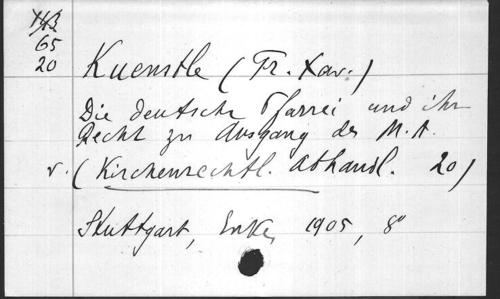 143
65
20
Kuenstle (Fr. Xav.)
Die deutsche Pfarrei und ihr
Recht zu Ausgang des M. A.
v. (Kirchenrechtl. Abhandl. 20)
Stuttgart, Enke, 1905, 8°